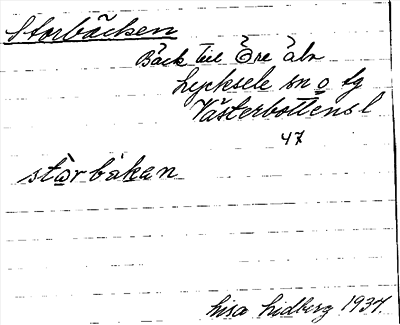 Storbäcken
Bäck till Öre älv
Lycksele sn o tg
Västerbottens l
47
stòrbàkan
Lisa Lidberg 1934.